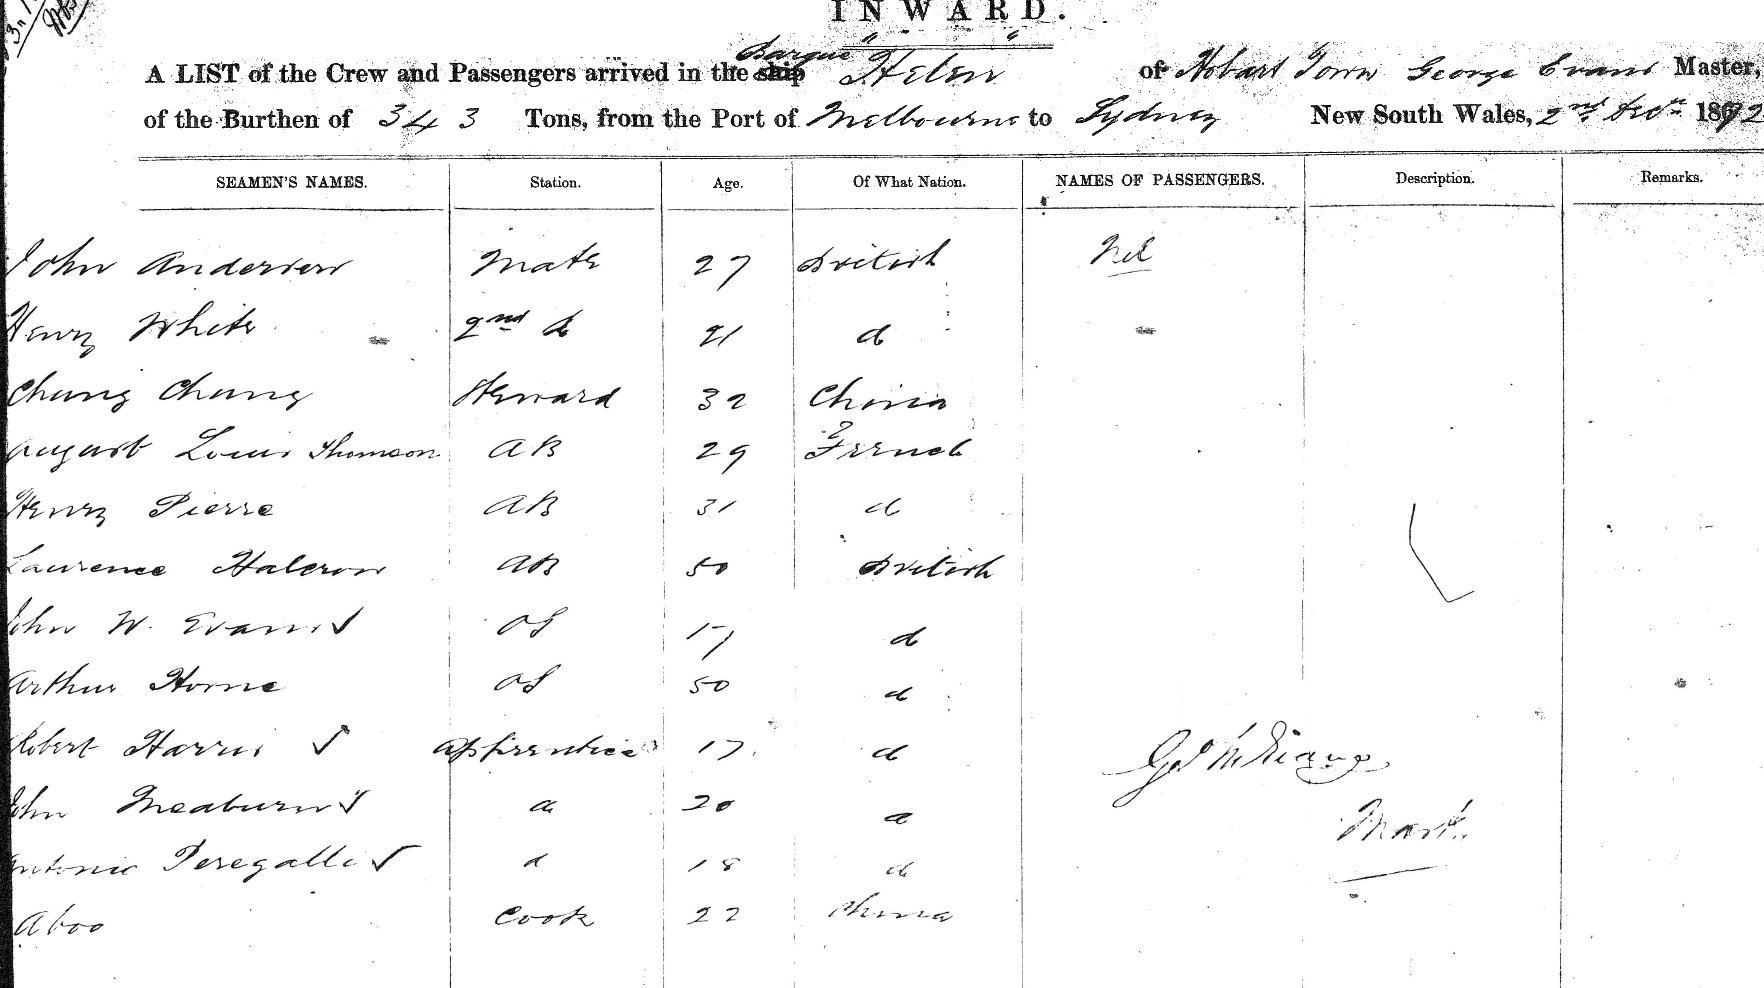 INWARD.
A LIST of the Crew and Passengers arrived in the ship Barque "Helen" of Hobart Town George Evans Master,
of the Burthen of 343 Tons, from the Port of Melbourne to Sydney New South Wales, 2nd 1872
SEAMEN'S NAMES. Station. Age. Of What Nation. NAMES OF PASSENGERS. Description. Remarks.
John Anderson Mate 27 British Nil
Henry White 2nd d 21 d
Chung Chung Steward 32 China
August Louis Thomson AB 29 French
Henry Pierre AB 31 d
Laurence Halcrow AB 50 British
John W. Evans ✓ OS 17 d
Arthur Horne OS 50 d
Robert Harris ✓ Apprentice 17 d
John Meaburn ✓ d 20 d
Antonio Peregalli ✓ d 18 d
Aboo Cook 22 China
Geo Evans
Mast.